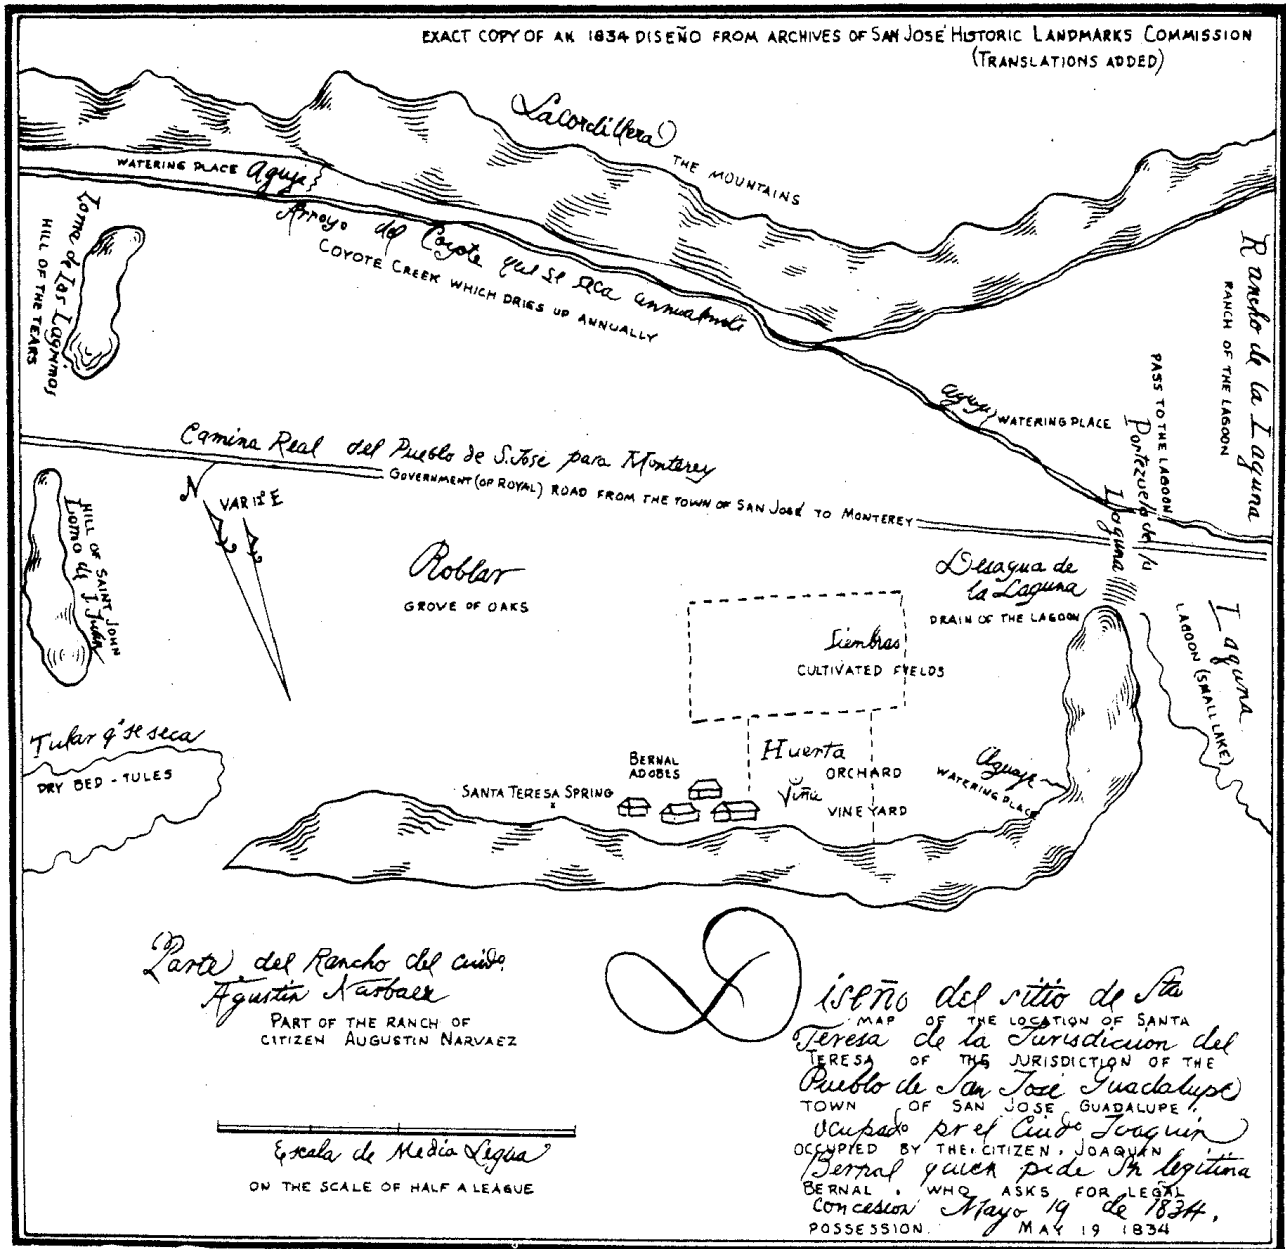 EXACT COPY OF AN 1834 DISEÑO FROM ARCHIVES OF SAN JOSÉ HISTORIC LANDMARKS COMMISSION
(TRANSLATIONS ADDED)
La Cordillera
THE MOUNTAINS
WATERING PLACE Aguje
Arroyo del Coyote que se seca annualmente
COYOTE CREEK WHICH DRIES UP ANNUALLY
Loma de Las Lagrimos
HILL OF THE TEARS
Rancho de la Laguna
RANCH OF THE LAGOON
PASS TO THE LAGOON
Portezuelo de la
Laguna
Aguaje WATERING PLACE
Camina Real del Pueblo de S. José para Monterey
GOVERNMENT (OR ROYAL) ROAD FROM THE TOWN OF SAN JOSÉ TO MONTEREY
N
VAR 15° E
HILL OF SAINT JOHN
Loma de S. Juan
Roblar
GROVE OF OAKS
Desagua de
la Laguna
DRAIN OF THE LAGOON
Siembras
CULTIVATED FIELDS
Laguna
LAGOON (SMALL LAKE)
Tular q' se seca
DRY BED - TULES
BERNAL
ADOBES
Huerta
ORCHARD
Viña
VINEYARD
SANTA TERESA SPRING
x
Aguaje
WATERING PLACE
Parte del Rancho del ciudo
Agustin Narbaez
PART OF THE RANCH OF
CITIZEN AUGUSTIN NARVAEZ
Escala de Media Legua
ON THE SCALE OF HALF A LEAGUE
Diseño del sitio de Sta
MAP OF THE LOCATION OF SANTA
Teresa de la Jurisdiccion del
TERESA OF THE JURISDICTION OF THE
Pueblo de San José Guadalupe
TOWN OF SAN JOSE GUADALUPE,
ocupado pr el Ciudo Joaquin
OCCUPIED BY THE CITIZEN, JOAQUAN
Bernal quien pide Sn legitima
BERNAL, WHO ASKS FOR LEGAL
Concesion Mayo 19 de 1834.
POSSESSION. MAY 19 1834